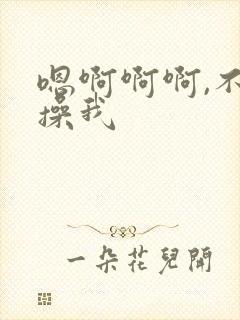 嗯啊啊啊,不
操我
一朵花兒開